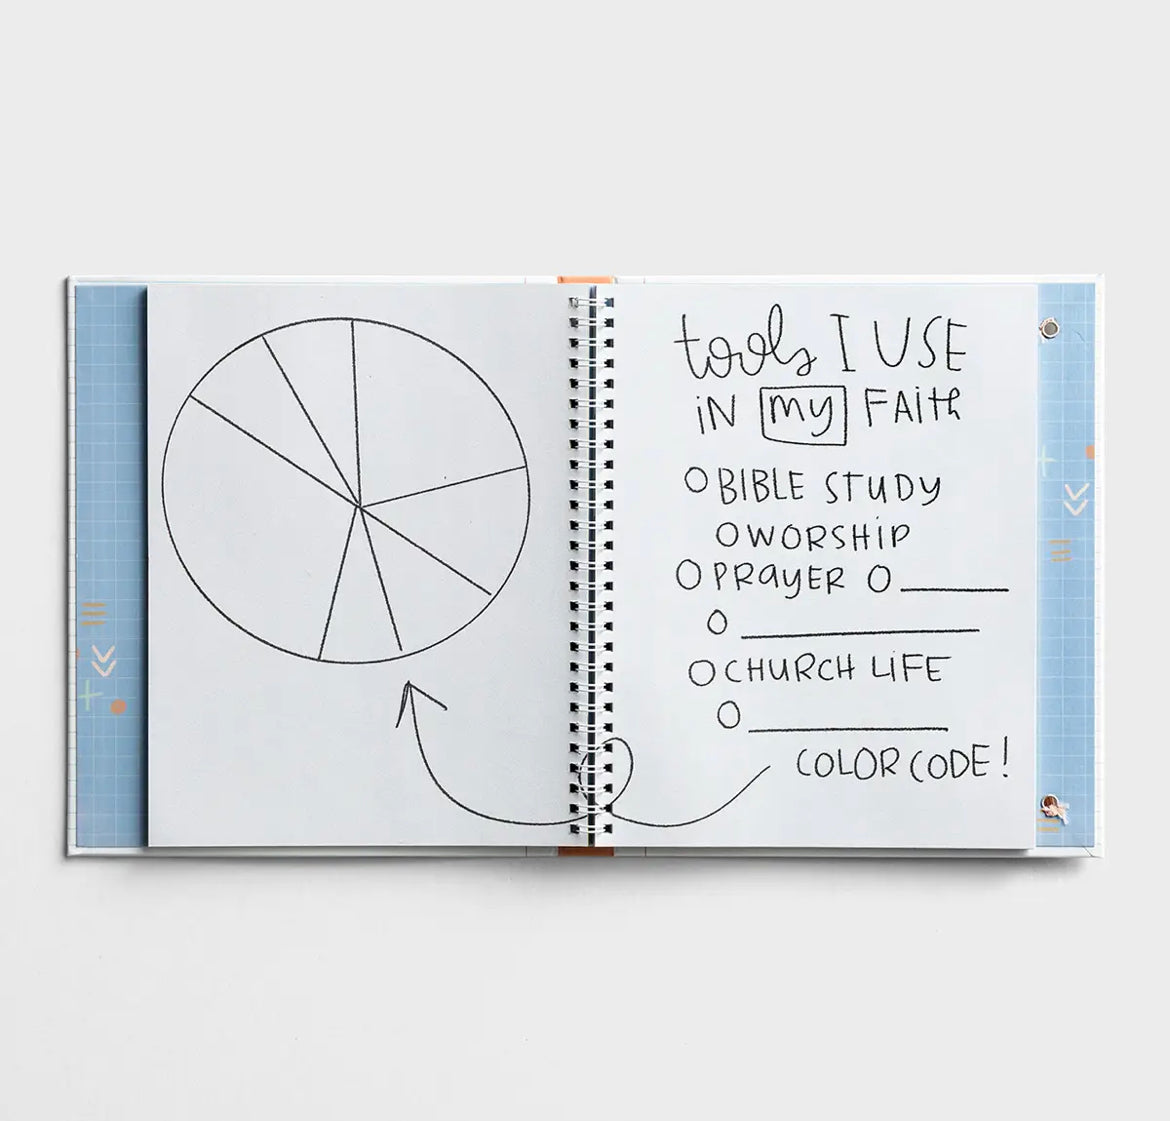 tools I USE
IN my FAITH
O BIBLE STUDY
O WORSHIP
O PRAYER O ________
O ________________
O CHURCH LIFE
O ______________
COLOR CODE!